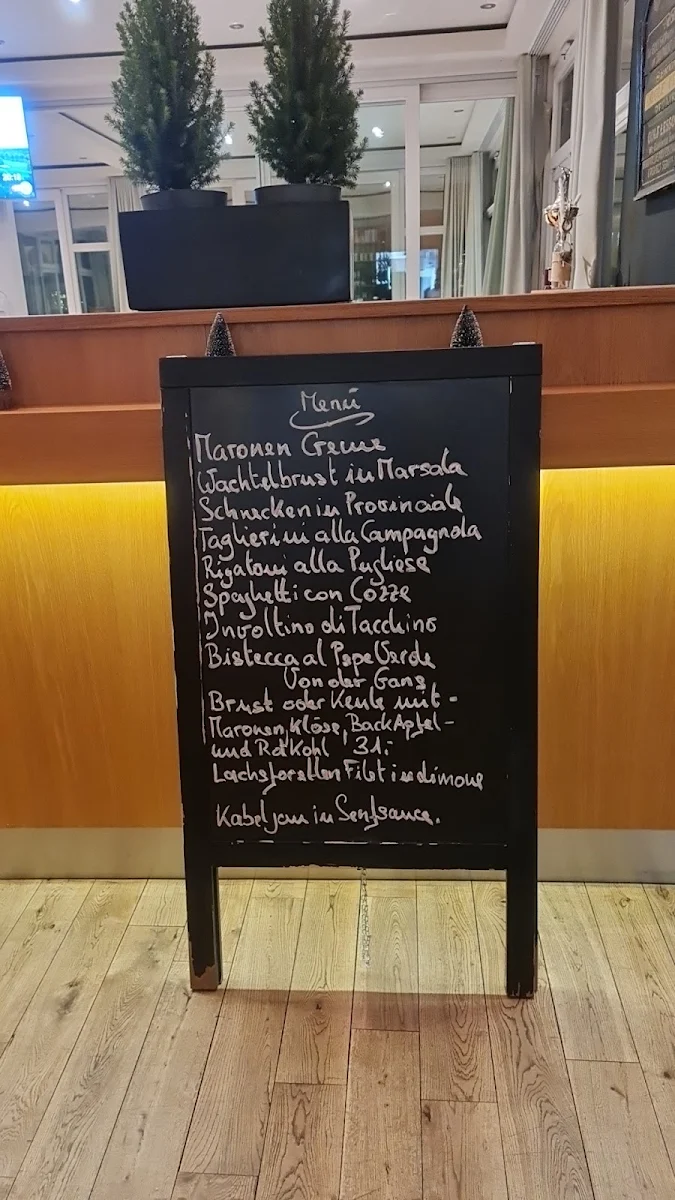 Menü
Maronen Creme
Wachtelbrust in Marsala
Schnecken in Provinciale
Taglierini alla Campagnola
Rigatoni alla Pugliese
Spaghetti con Cozze
Involtino di Tacchino
Bistecca al Pepe Verde
Von der Gans
Brust oder Keule mit -
Maronen, Klöse, Back Apfel -
und Rotkohl 31.-
Lachsforellen Filet in limone
Kabeljau in Senfsauce.